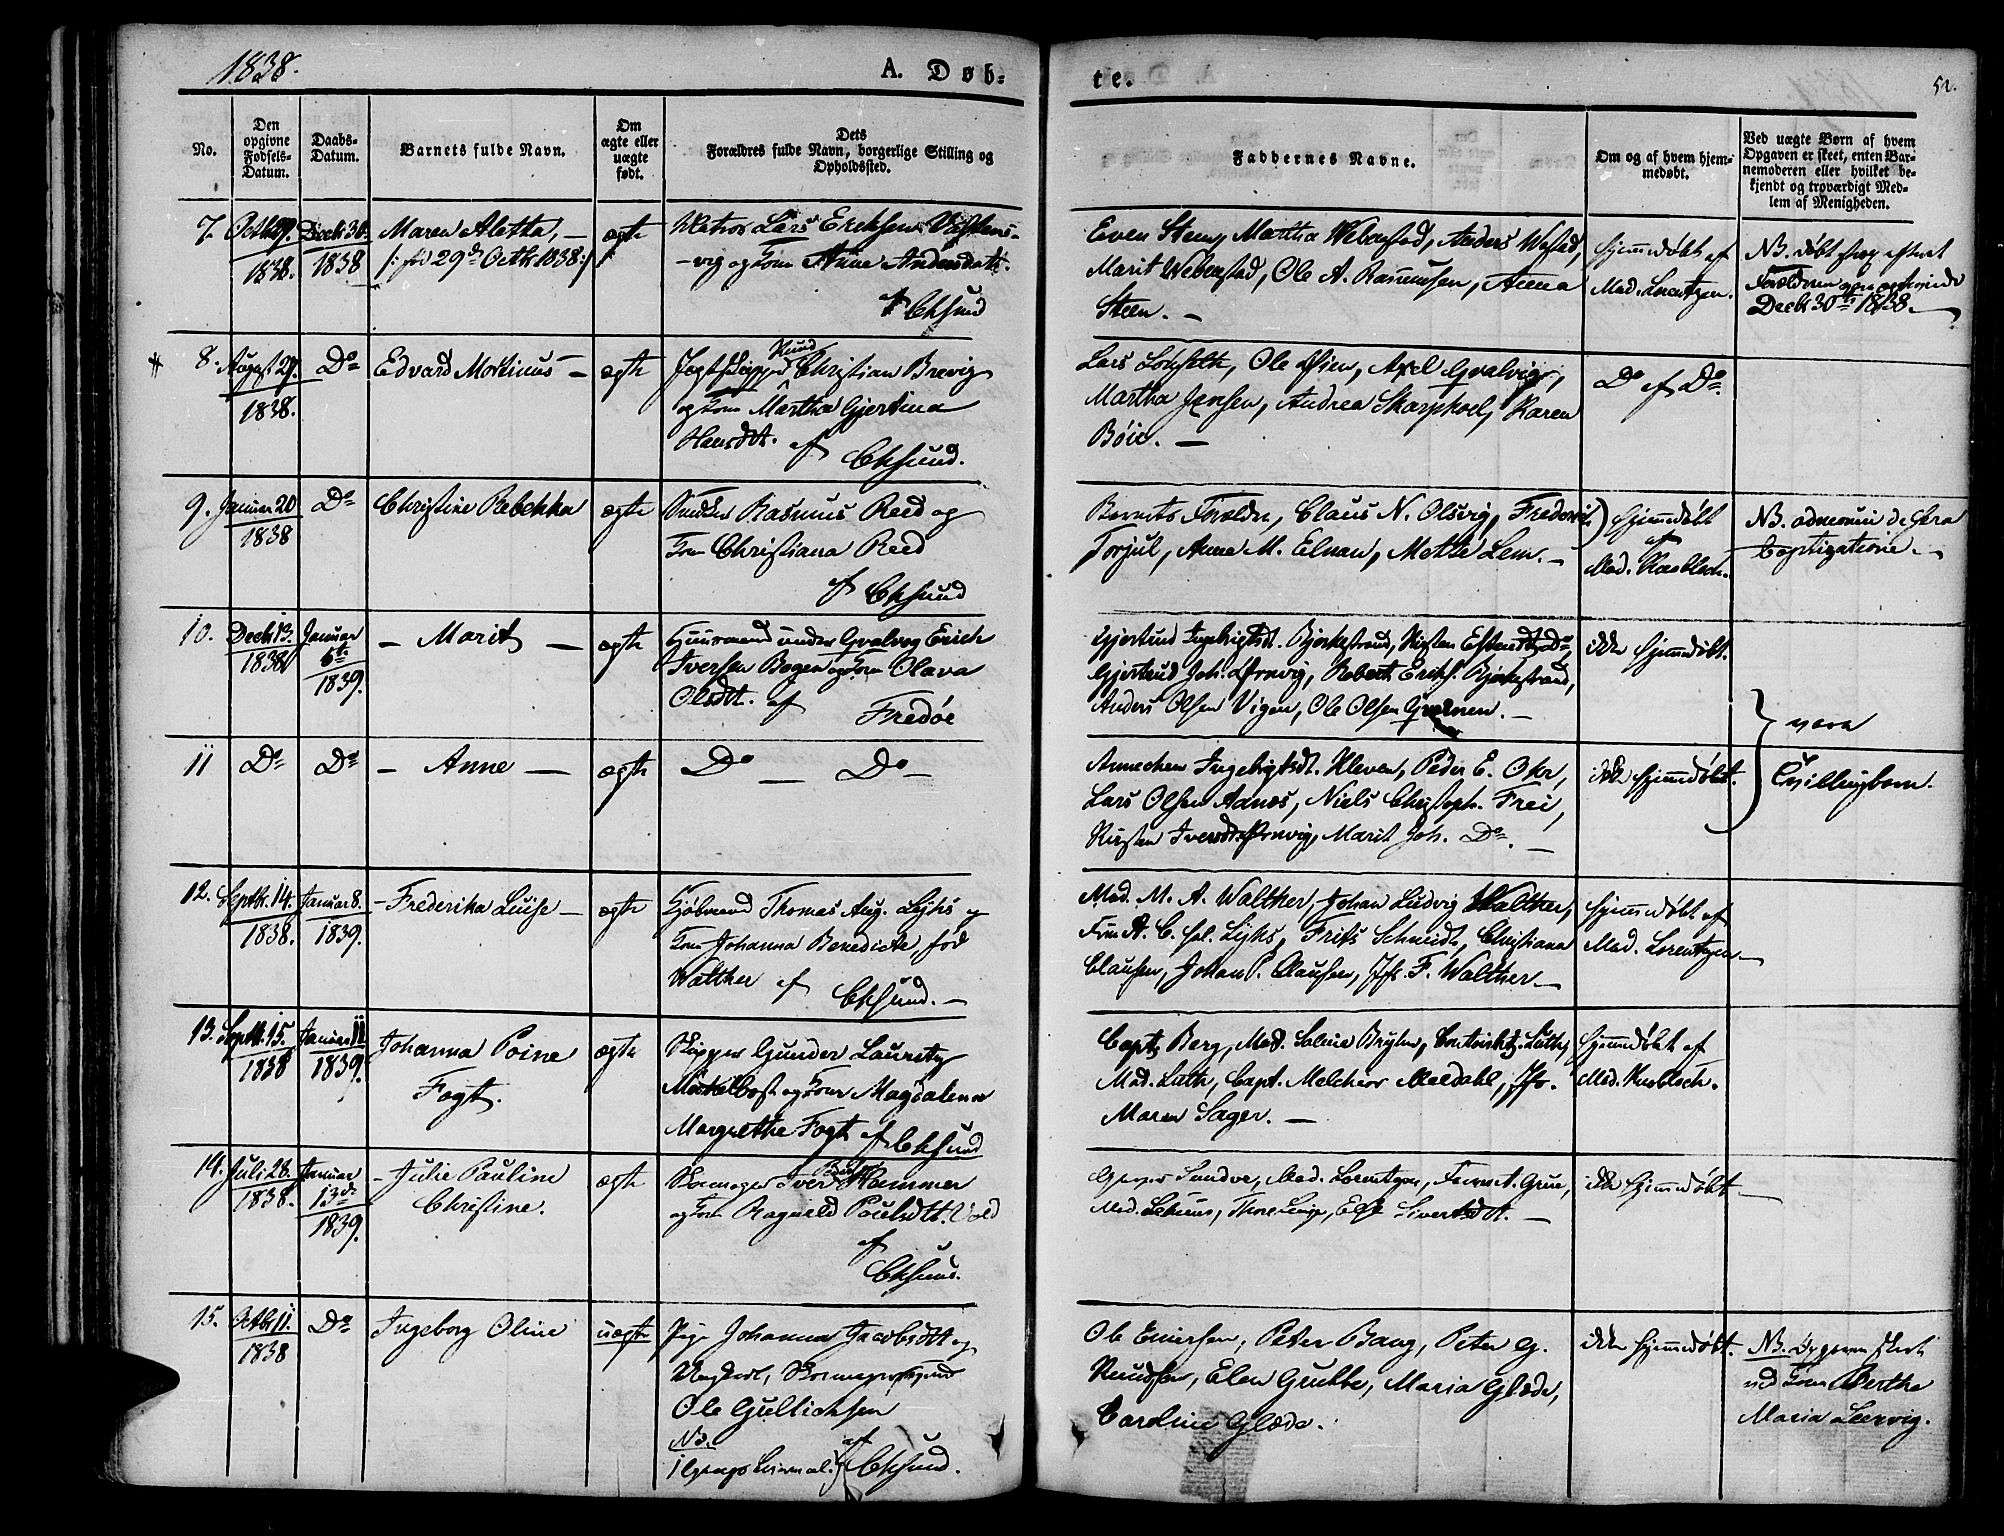 1838.
A. Døb-
te.
52.
No.
Den opgivne Fødsels-Datum.
Daabs-Datum.
Barnets fulde Navn.
Om ægte eller uægte født.
Dets Forældres fulde Navn, borgerlige Stilling og Opholdssted.
Faddernes Navne.
Om og af hvem hjem-medøbt.
Ved uægte Børn af hvem Opgaven er skeet, enten Bar-nemoderen eller hvilket be-kjendt og troværdigt Med-lem af Menigheden.
7.
Octbr 29.
1838.
Decb 30.
1838
Maren Aletta, —
/: fød 29de Octb. 1838 :/
ægte
Matros Lars Eriksen
-vig og Kone Anne Andersdatt.
af Chsund
Even Steen, Martha Webenstad, Anders
Marit Webenstad, Ole A. Rasmussen, Anna
Steen. —
hjemmedøbt af
Mad. Lorentzen.
NB. døbt
Forældrene
Decbr 30te 1838. —
8.
August 29.
1838.
Do
Edvard Martinus —
ægte
Jagtskipper Knud Christian Brevig
og Kone Martha Gjertina
Hansdt. af
Chsund.
Lars Lossfelth, Ole Øien, Axel Qvalvig,
Martha Jensen, Andrea Skarpkoel, Karen
Bøie. —
Do af Do
9.
Januar 20
1838
Do
Christine Rebekka
ægte
Snedker Rasmus Reed og
Kone Christiana Reed
af Chsund
Barnets Forældre, Claus N. Olsvig, Frederik
Torjul, Anne M. Elnan, Mette Lem. —
hjemmedøbt
af
Mad.
NB.
baptizatione. —
10.
Decb 13.
1838
Januar
6te
1839.
— Marit —
ægte
Huusmand under Qvalvog Erich
Iversen Bogen og Kone Olava
Olsdt. af
Fredøe
Gjertrud Ingebrigtsdt. Bjerkestrand, Kirsten
Gjertrud Joh. Ørnvig, Robert Eriks. Bjerkestrand,
Anders Olsen Vigen, Ole Olsen —
ikke hjemmedøbt.
11
Do
Do
— Anne —
ægte
Do — Do —
Annechen Ingebrigtsdt. Kleven, Peder E.
Lars Olsen Aanes, Niels Christoph. Frei,
Kirsten Iversdt. Ørnvig, Marit Joh. Do. —
ikke hjemmedøbt.
vare
Tvillingbørn.
12.
Septb. 14.
1838.
Januar 8.
1839.
— Frederika Luise —
ægte
Kjøbmand Thomas Aug. Lyhs og
Kone Johanna Benedicte, fød
Walther af
Chsund. —
Mad. M. A. Walther, Johan Ludvig Walther,
A. C. Lyhs, Frits Schmidt, Christiana
Clausen, Johan P. Clausen, Jfr. F. Walther —
hjemmedøbt af
Mad. Lorentzen —
13.
Septb. 15.
1838
Januar 11
1839.
Johanna Poine
Fogt.
ægte
Skipper Gunder Lauretz
Mickelbost og Kone Magdalena
Margrethe Fogt af Chsund
Capt. Berg, Mad. Salina
Mad. Luth, Capt. Melchior Meldahl, Jfr.
Maren Sager. —
hjemmedøbt af
Mad.
14.
Juli 28.
1838.
Januar
13de
1839.
— Julie Pauline
Christine.
ægte
Skomager Iver Hammer
og Kone Ragnild Poulsdtt. Vold
af
Chsund.
Mad. Lorentzen,
Mad. Sivertsdt. —
ikke hjemmedøbt —
15.
Octb 11.
1838
Do
Ingeborg Oline
uægte
Pige Johanna Jacobsdtt og
Ungkarl, Skomagersvend
Ole Gullichsen
NB.
af
Chsund.
Ole Einersen, Peter Bang, Peter G.
Knudsen, Elen Grubbe, Maria Glæde,
Caroline Glæde.
ikke hjemmedøbt.
NB. Opgaven skeet
ved Kone Berthe
Maria Leervig.